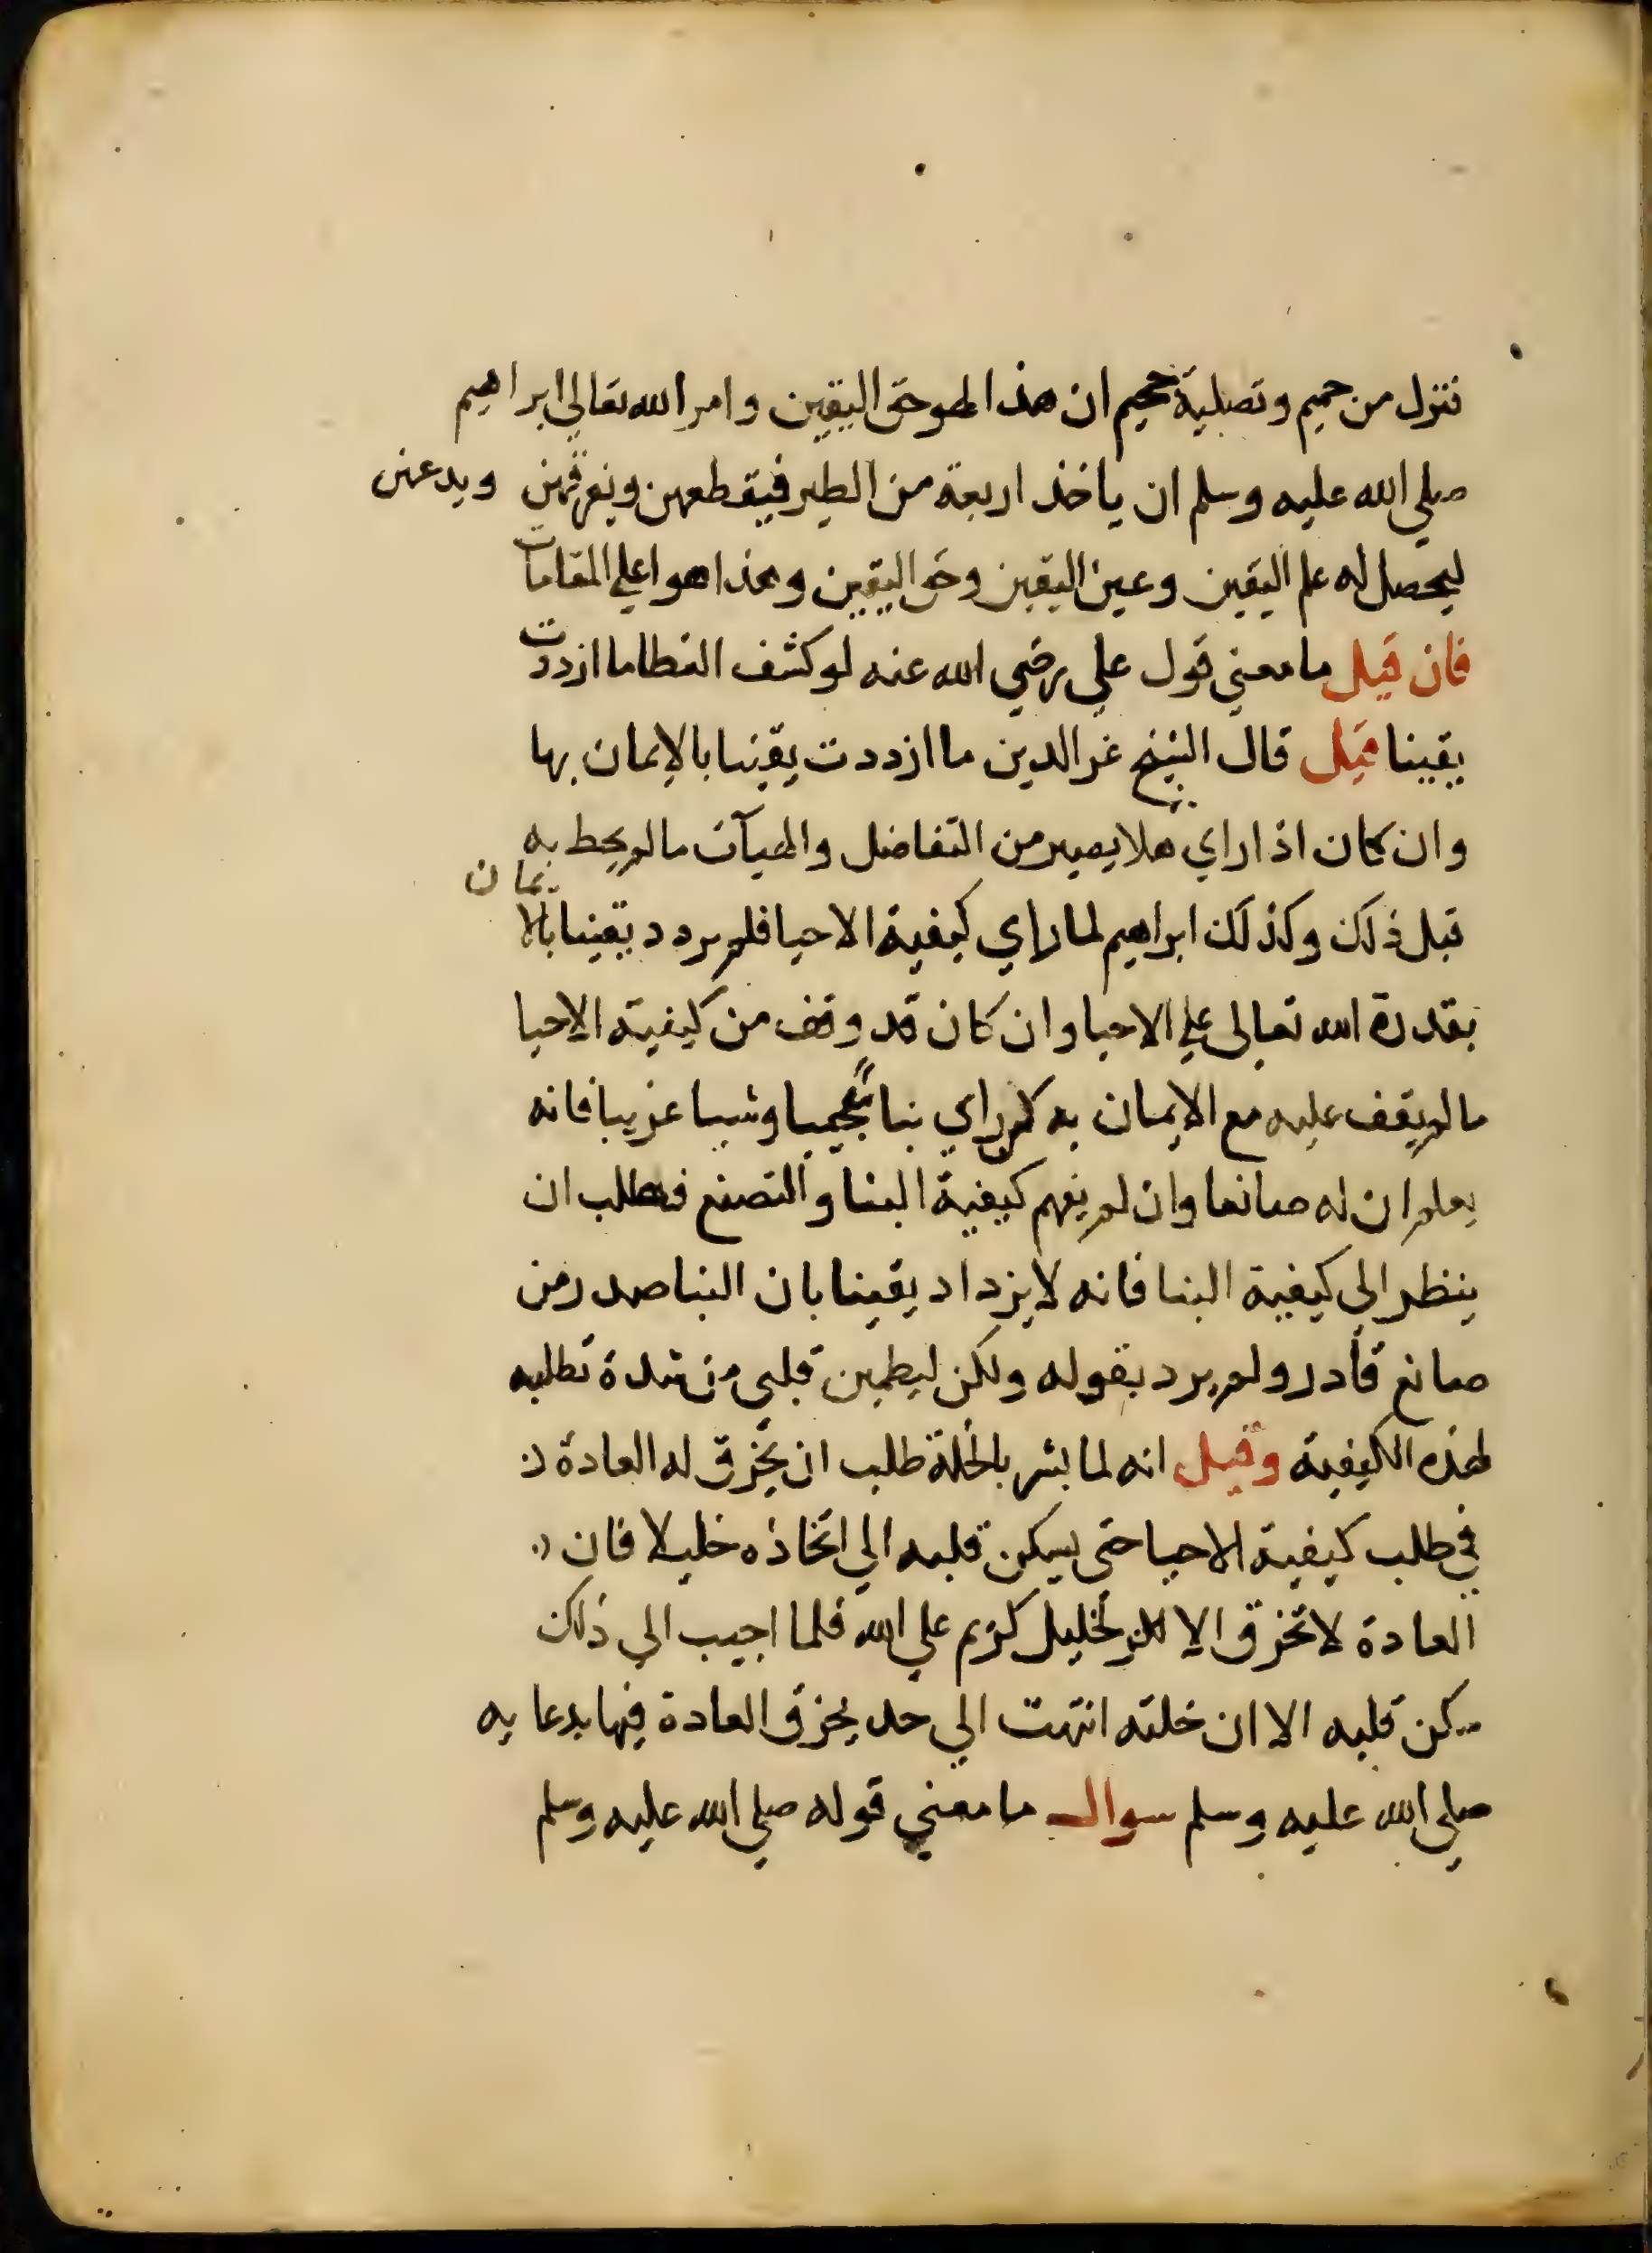 فنزل من حميم وتصلية جحيم ان هذا لهو حق اليقين وامر الله تعالي ابراهيم
صلي الله عليه وسلم ان ياخذ اربعة من الطير فيقطعهن ويفرقهن ويدعهن
ليحصل له علم اليقين وعين اليقين وحق اليقين وهذا هو اعلي المقامات
فان قيل ما معني قول علي رضي الله عنه لو كشف الغطا ما ازددت
يقينا قيل قال الشيخ عز الدين ما ازددت يقينا بالايمان بها
وان كان اذا راي من التفاضل والهيآت ما لم يحط به
قبل ذلك وكذلك ابراهيم لما راي كيفية الاحيا فلم يردد يقينا بالايمان
بقدرة الله تعالى علي الاحيا وان كان قد وقف من كيفية الاحيا
ما لم يقف عليه مع الايمان به كمن راي بنا عجيبا وشيا غريبا فانه
يعلم ان له صانعا وان لم يفهم كيفية البنا والتصنع فطلب ان
ينظر الي كيفية البنا فانه لا يزداد يقينا بان البنا صدر من
صانع قادر ولم يرد بقوله ولكن ليطمين قلبي من شدة تطلبه
لهذه الكيفية وقيل انه لما بشر بالخلة طلب ان تخرق له العادة
في طلب كيفية الاحيا حتى يسكن قلبه الي اتخاذه خليلا فان
العادة لا تخرق الا لخليل كريم علي الله فلما اجيب الي ذلك
سكن قلبه الا ان خلته انتهت الي حد يخرق العادة فيها بدعايه
صلي الله عليه وسلم سوال ما معني قوله صلي الله عليه وسلم